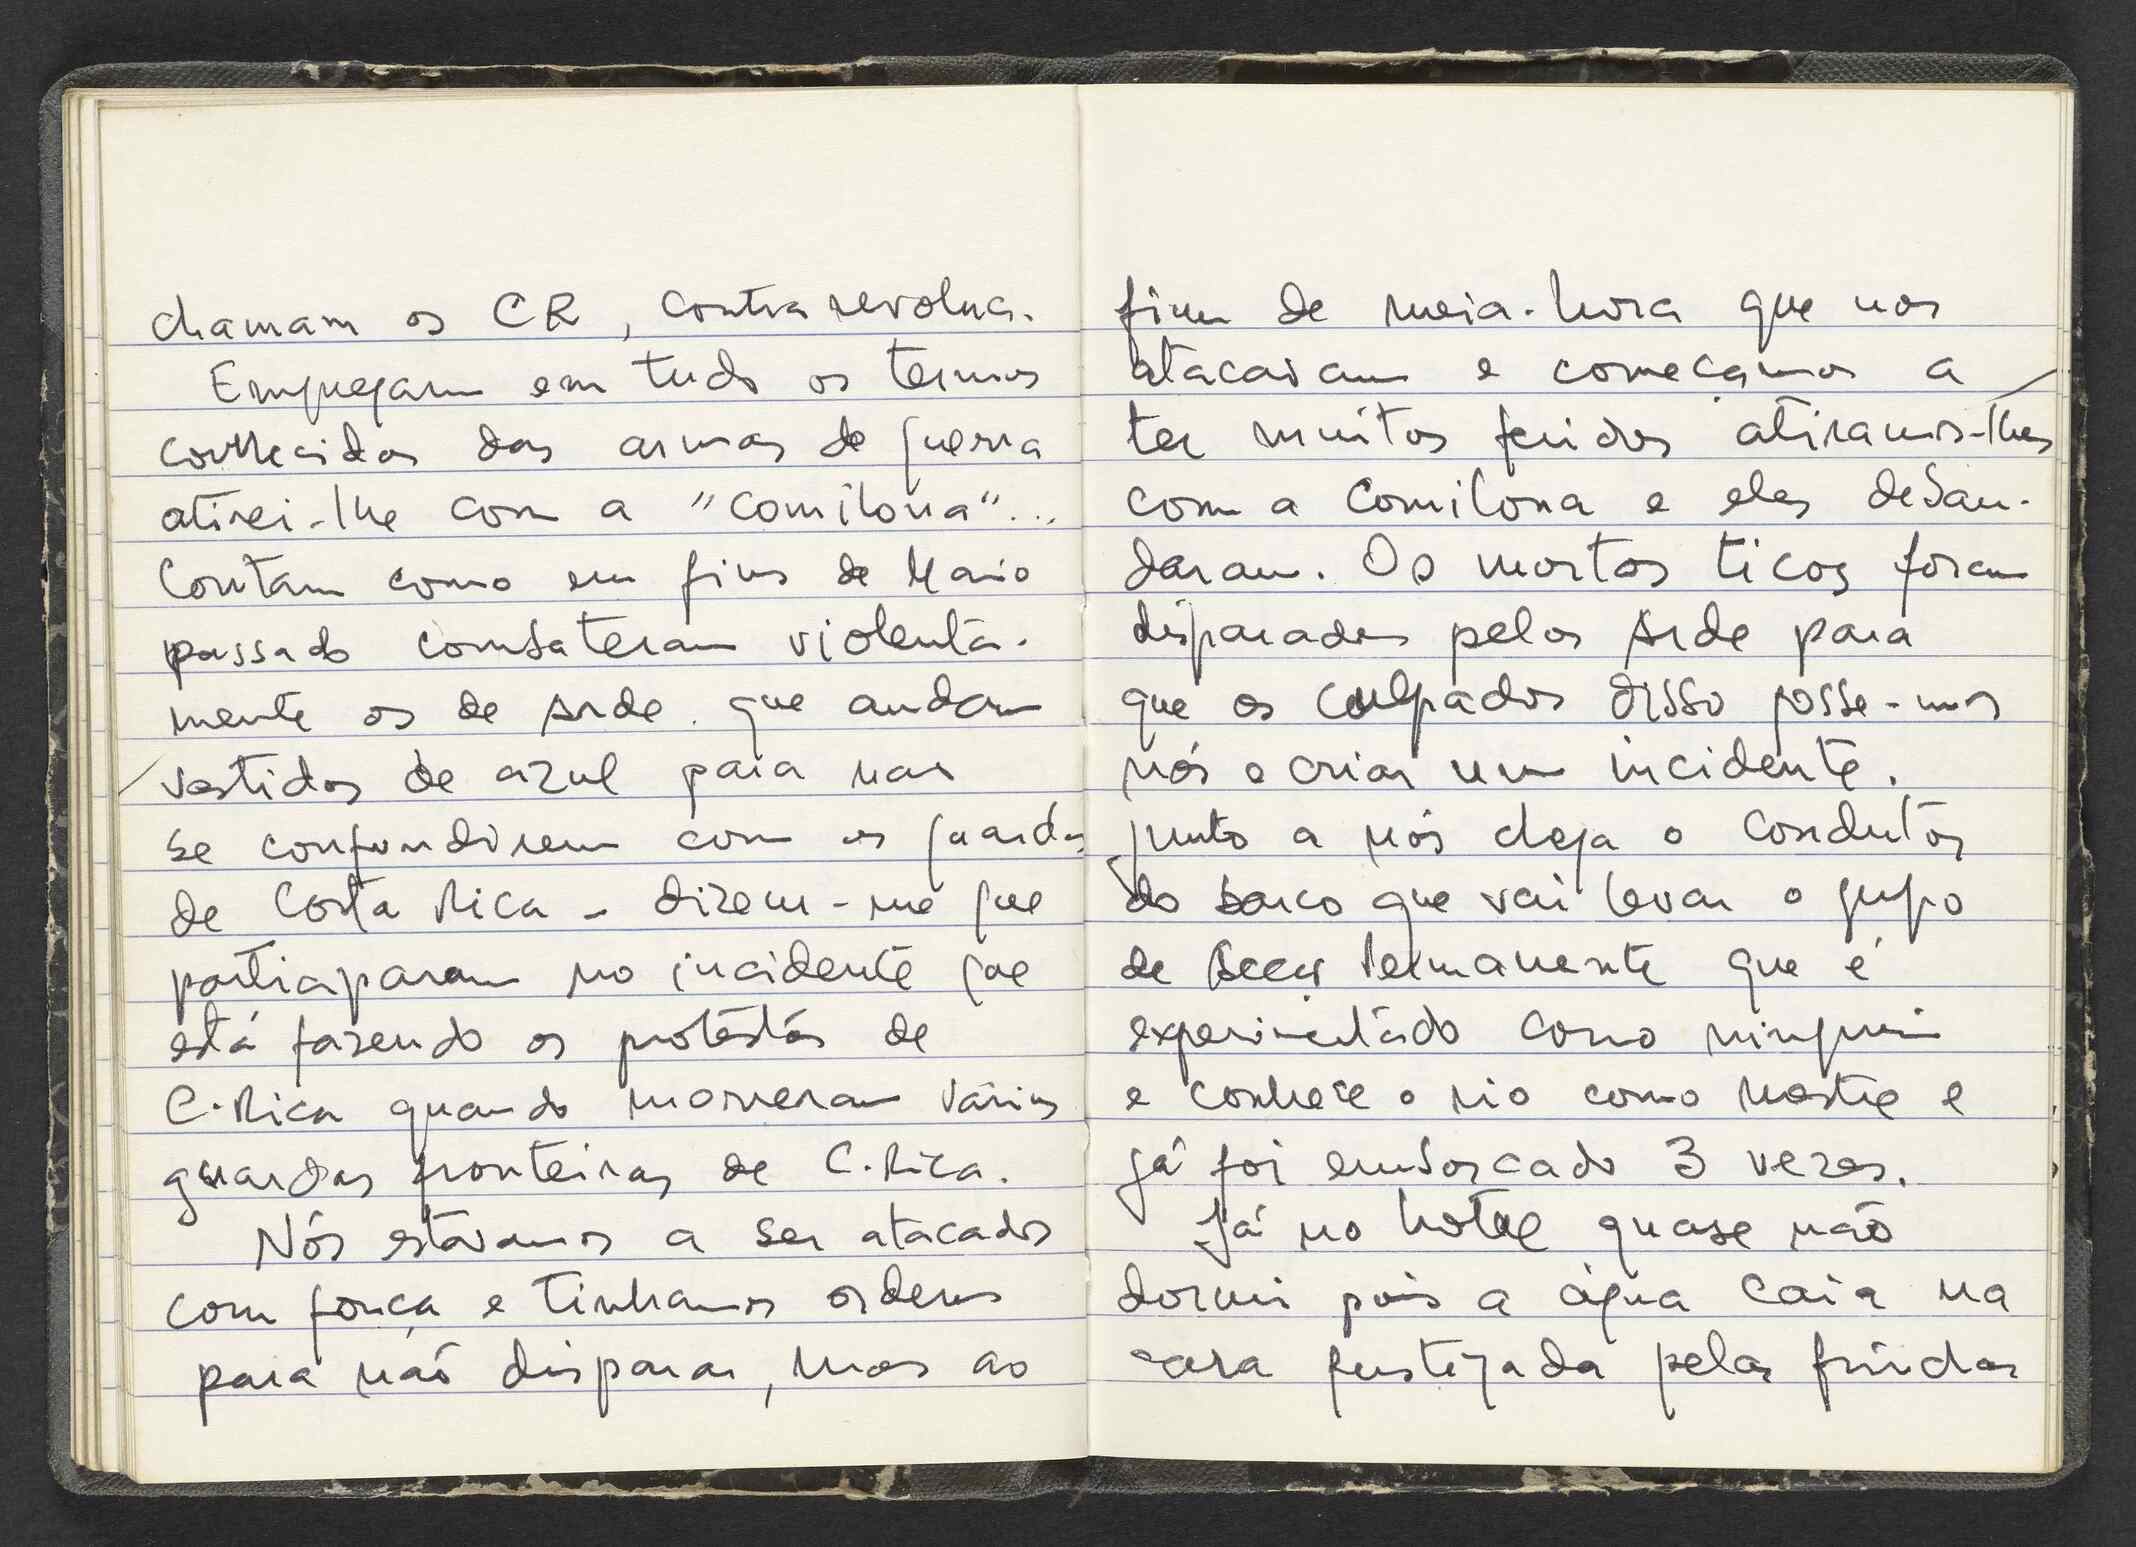 chamam os CR, contra revoluc.
Empregam em tudo os termos
conhecidos das armas de guerra
atirei-lhe com a "comilona"...
Contam como em fins de Maio
passado combateram violenta-
mente os de Arde. que andam
vestidos de azul para nao
se confundirem com os guardas
de Costa Rica - dizem-me que
participaram no incidente que
está fazendo os protestos de
C. Rica quando morreram vários
guardas fronteiras de C. Rica.
Nós estávamos a ser atacados
com força e tinhamos ordens
para não disparar, mas ao
fim de meia-hora que nos
atacavam e começamos a
ter muitos feridos atiramos-lhes
com a Comilona e eles desan-
daram. Os mortos ticos foram
disparados pelos Arde para
que os culpados disso fosse-mos
nós e criar um incidente.
Junto a nós chega o condutor
do barco que vai levar o grupo
de Permanente que é
experimentado como ninguem
e conhece o rio como mestre e
já foi emboscado 3 vezes.
Já no hotel quase não
dormi pois a água caia na
cara fustigada pelas